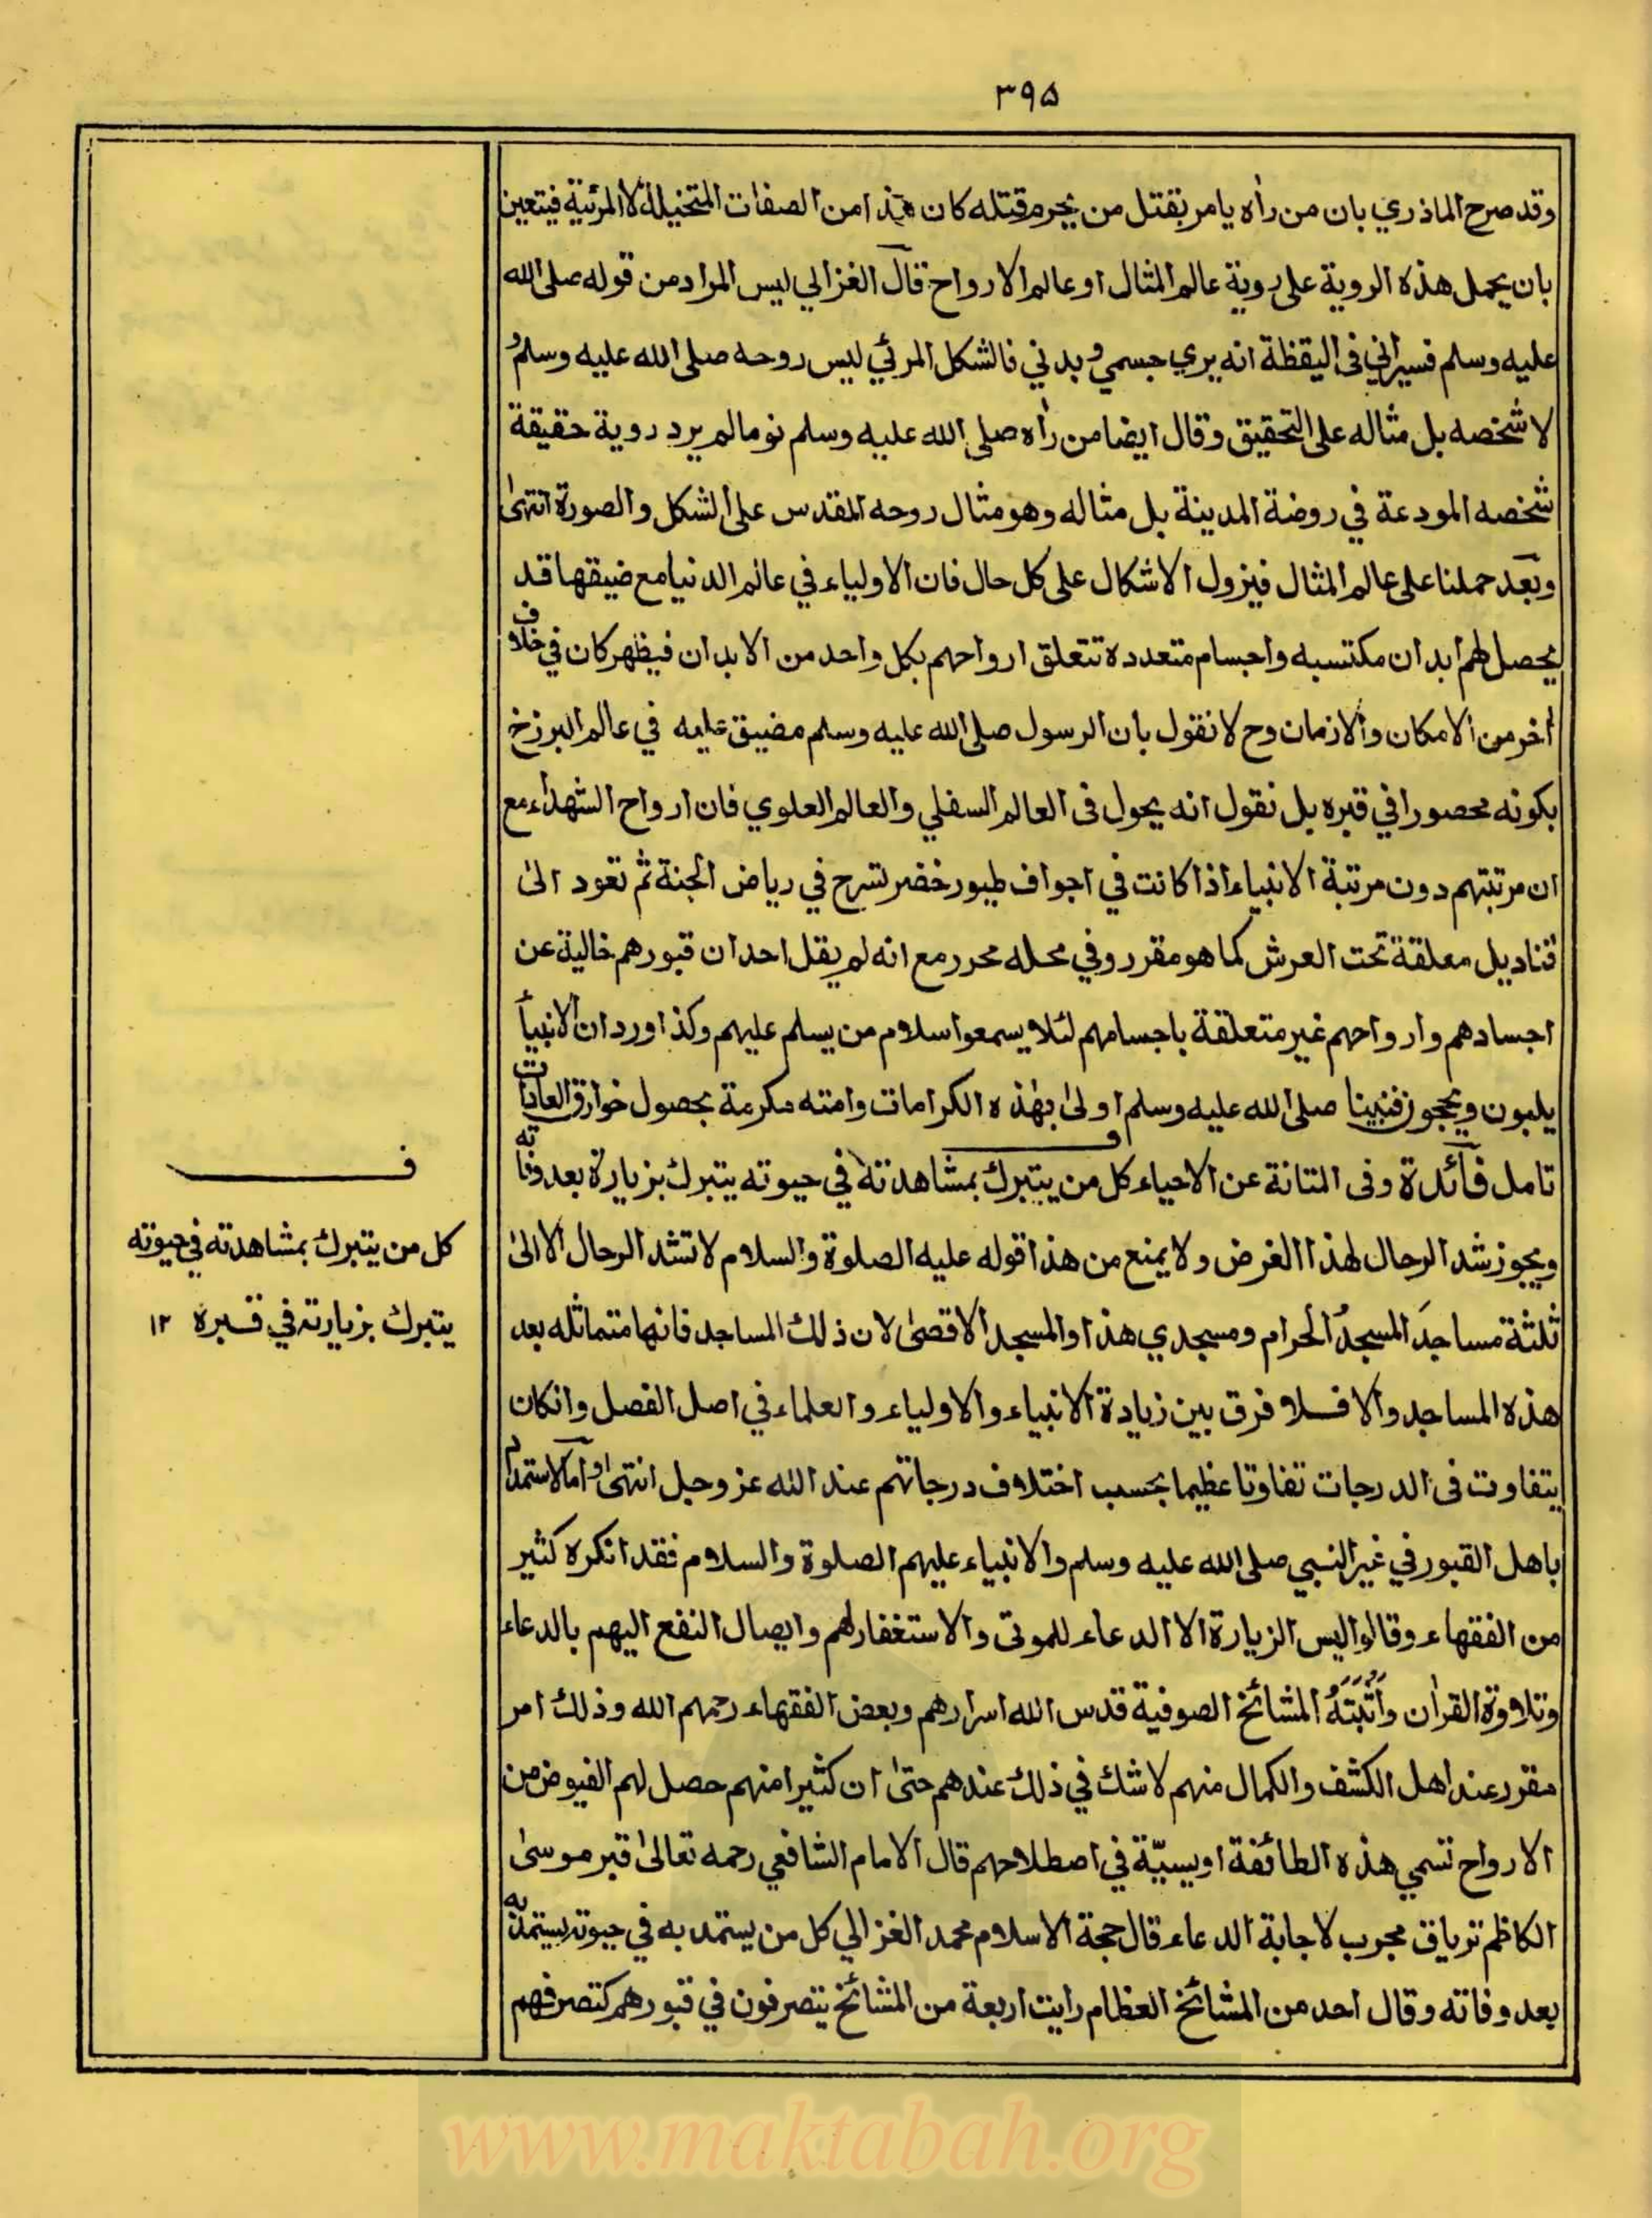 ٣٩۵
وقد صرح الماذري بان من رأه يامر بقتل من يحرم قتله كان هذا من الصفات المتخيلة لا المرئية فيتعين
بان يحمل هذه الروية على روية عالم المثال او عالم الارواح قال الغزالي ليس المراد من قوله صلى الله
عليه وسلم فسيراني فى اليقظة انه يري جسمي وبدني فالشكل المرئي ليس روحه صلى الله عليه وسلم و
لا شخصه بل مثاله على التحقيق وقال ايضا من رأه صلى الله عليه وسلم نوما لم يرد روية حقيقة
شخصه المودعة في روضة المدينة بل مثاله وهو مثال روحه المقدس على الشكل والصورة انتهى
وبعد حملنا على عالم المثال فيزول الاشكال على كل حال فان الاولياء في عالم الدنيا مع ضيقها قد
يحصل لهم ابدان مكتسبه واجسام متعدده تتعلق ارواحهم بكل واحد من الابدان فيظهر كان في خلاف
أخر من الامكان والازمان وح لا نقول بان الرسول صلى الله عليه وسلم مضيق عليه في عالم البرزخ
بكونه محصورا في قبره بل نقول انه يحول فى العالم السفلي والعالم العلوي فان ارواح الشهداء مع
ان مرتبتهم دون مرتبة الانبياء اذا كانت في اجواف طيور خضر تسرح في رياض الجنة ثم تعود الى
قناديل معلقة تحت العرش كما هو مقرر وفي محله محرر مع انه لم يقل احد ان قبورهم خالية عن
اجسادهم وارواحهم غير متعلقة باجسامهم لئلا يسمعوا سلام من يسلم عليهم وكذا ورد ان الانبيأ
يلبون ويحجون فنبينا صلى الله عليه وسلم اولى بهذه الكرامات وامته مكرمة بحصول خوارق العادات
تامل فائدة وفى المتانة عن الاحياء كل من يتبرك بمشاهدته في حيوته يتبرك بزيارة بعد وفاته
ويجوز شد الرحال لهذا الغرض ولا يمنع من هذا قوله عليه الصلوة والسلام لا تشد الرحال الا الى
ثلثة مساجد المسجد الحرام ومسجدي هذا والمسجد الاقصى لان ذلك المساجد فانها متماثله بعد
هذه المساجد والا فلا فرق بين زيادة الانبياء والاولياء والعلماء في اصل الفصل وانكان
يتفاوت فى الدرجات تفاوتا عظيما بحسب اختلاف درجاتهم عند الله عز وجل انتهى واما الاستمداد
باهل القبور في غير النبي صلى الله عليه وسلم والانبياء عليهم الصلوة والسلام فقد انكره كثير
من الفقهاء وقالوا ليس الزيارة الا الدعاء للموتى والاستغفار لهم وايصال النفع اليهم بالدعاء
وتلاوة القرأن وأثبته المشائخ الصوفية قدس الله اسرارهم وبعض الفقهاء رحمهم الله وذلك امر
مقرر عند اهل الكشف والكمال منهم لا شك في ذلك عندهم حتى ان كثيرا منهم حصل لهم الفيوض من
الارواح تسمي هذه الطائفة اويسيّة في اصطلاحهم قال الامام الشافعي رحمه تعالى قبر موسى
الكاظم ترياق مجرب لاجابة الدعاء قال حجة الاسلام محمد الغزالي كل من يستمد به في حيوته يستمد به
بعد وفاته وقال احد من المشائخ العظام رايت اربعة من المشائخ يتصرفون في قبورهم كتصرفهم
ف
كل من يتبرك بمشاهدته في حيوته
يتبرك بزيارته في قبره ١٢
www.maktabah.org